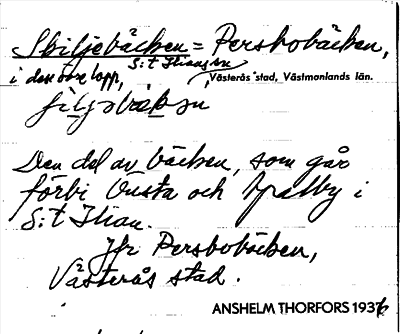 Skiljebäcken = Persbobäcken,
i dess övre lopp, S:t Ilians sn
Västerås stad, Västmanlands län.
Den del av bäcken, som går
förbi Önsta och Apalby i
S:t Ilian.
Jfr Persbobäcken,
Västerås stad.
ANSHELM THORFORS 1936